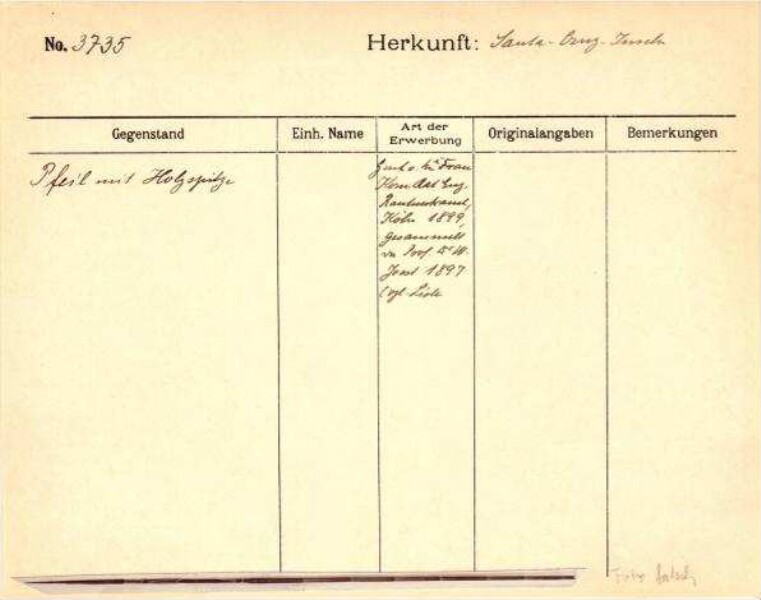 No. 3735
Herkunft: Santa-Cruz-Inseln
Gegenstand
Einh. Name
Art der Erwerbung
Originalangaben
Bemerkungen
Pfeil mit Holzspitze
Frau
Eug.
Rautenstrauch,
Köln 1899,
gesammelt
v. Prof. Dr. W.
Joest 1897
(vgl. Liste
Foto